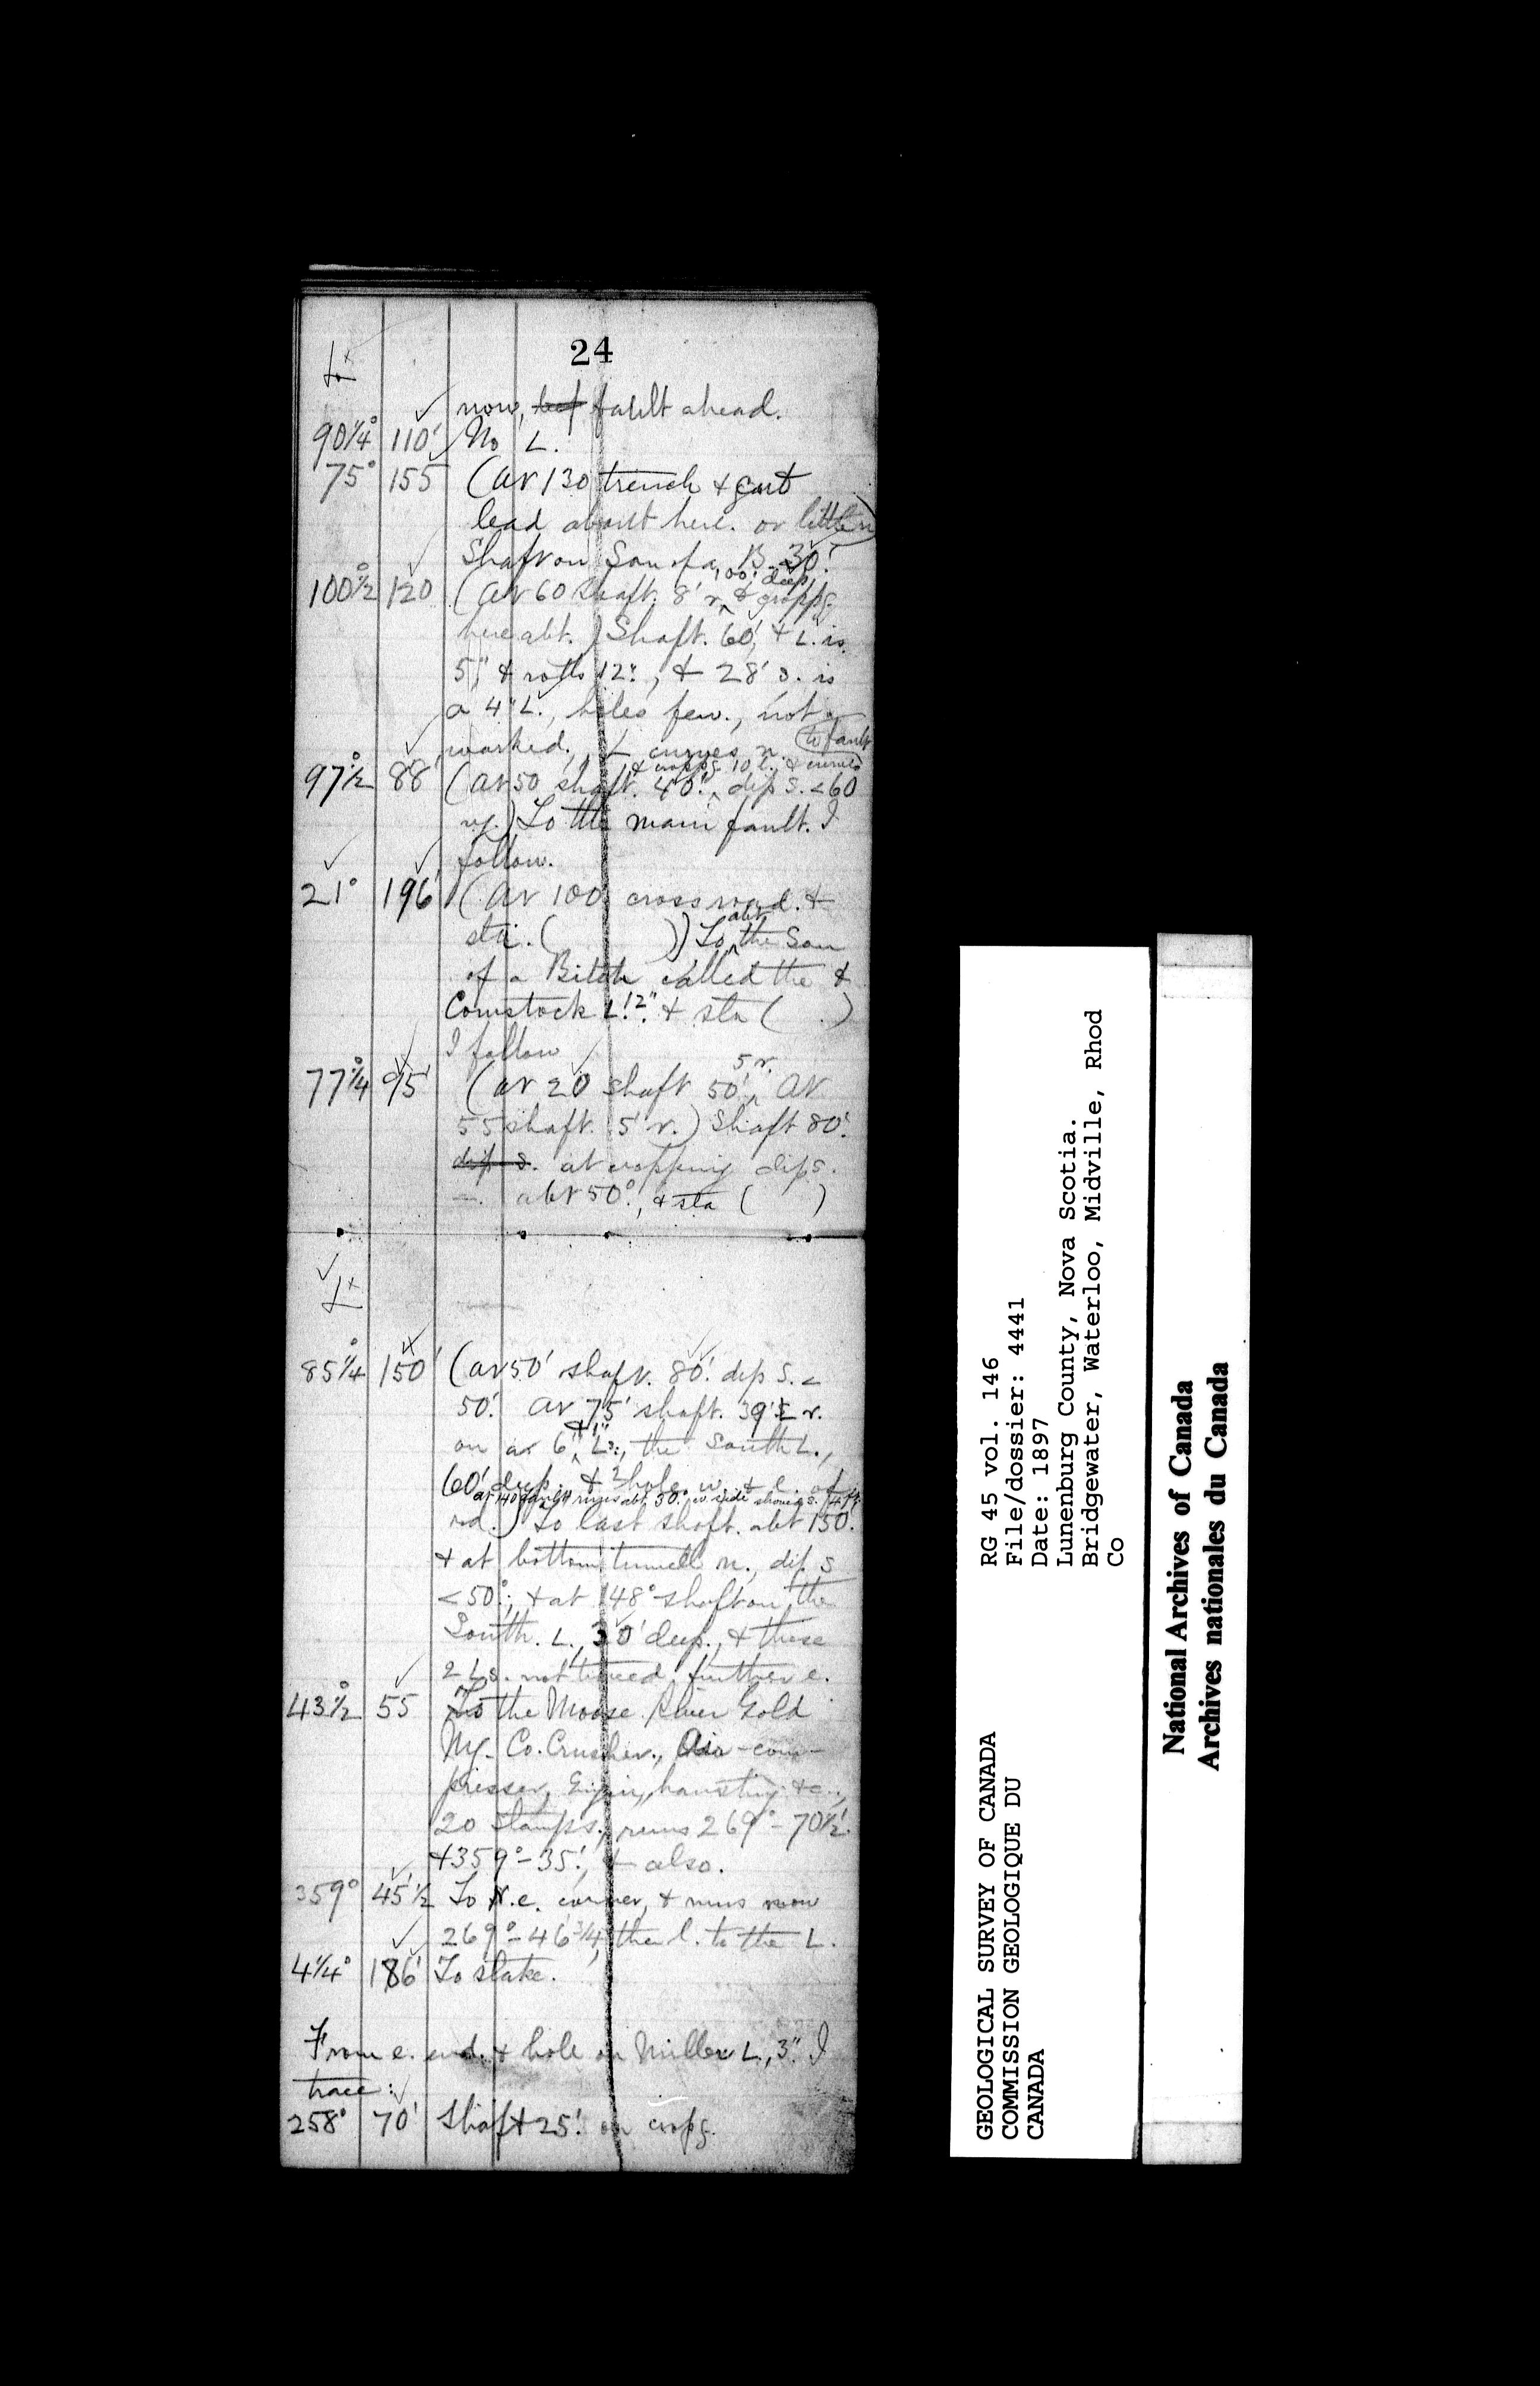 24
L
now, fault ahead.
90¼° 110' No L.
75° 155 (at 130 trench & cut
lead about here. or little n
Shaft on Son of a B 30'.
100½° 120 (at 60 shaft. 8' r. & 100' deep,
here abt.) Shaft. 60', & L. is
5", & rolls 12"., & 28' s. is
a 4" L., holes few., not
worked., L curves n. to fault
& cropps. 10 l. & curves
97½° 88' (at 50 shaft. 40'., dip S. <60
To the main fault. I
follow.
21° 196' (at 100 cross road. &
sta. ( )) To abt the Son
of a Bitch called the &
Comstock L. 12". & sta ( )
I follow
77¼° 95' (at 20 shaft 50', 5 r. At
55 shaft. 5' r.) Shaft 80'.
dip s. at cropping dip s.
abt 50°., & sta ( )
L
85¼° 150' (at 50' shaft. 80'. dip S. <
50'. At 75' shaft. 39' r.
on a 6" & 1" Ls., the South L.,
60' deep. & 2 hole w. & e. of
rd.) To last shaft. abt 150'.
& at bottom tunnell n., dip s
<50°., & at 148° shaft on the
South. L., 30' deep., & these
2 Ls. not traced further e.
43½° 55 To the Moose River Gold
My. Co. Crusher., Air-com-
presser, Engin, hausting &c.,
20 Stamps., runs 269° - 70½'.
& 359° - 35'., & also.
359° 45½' To N.e. corner, & runs now
269° - 46¾', then l. to the L.
4¼° 186' To stake.
From e. end. & hole on Miller L., 3". I
trace:
258° 70' Shaft 25'. on cropg.
RG 45 vol. 146
File/dossier: 4441
Date: 1897
Lunenburg County, Nova Scotia.
Bridgewater, Waterloo, Midville, Rhod
Co
GEOLOGICAL SURVEY OF CANADA
COMMISSION GEOLOGIQUE DU
CANADA
National Archives of Canada
Archives nationales du Canada